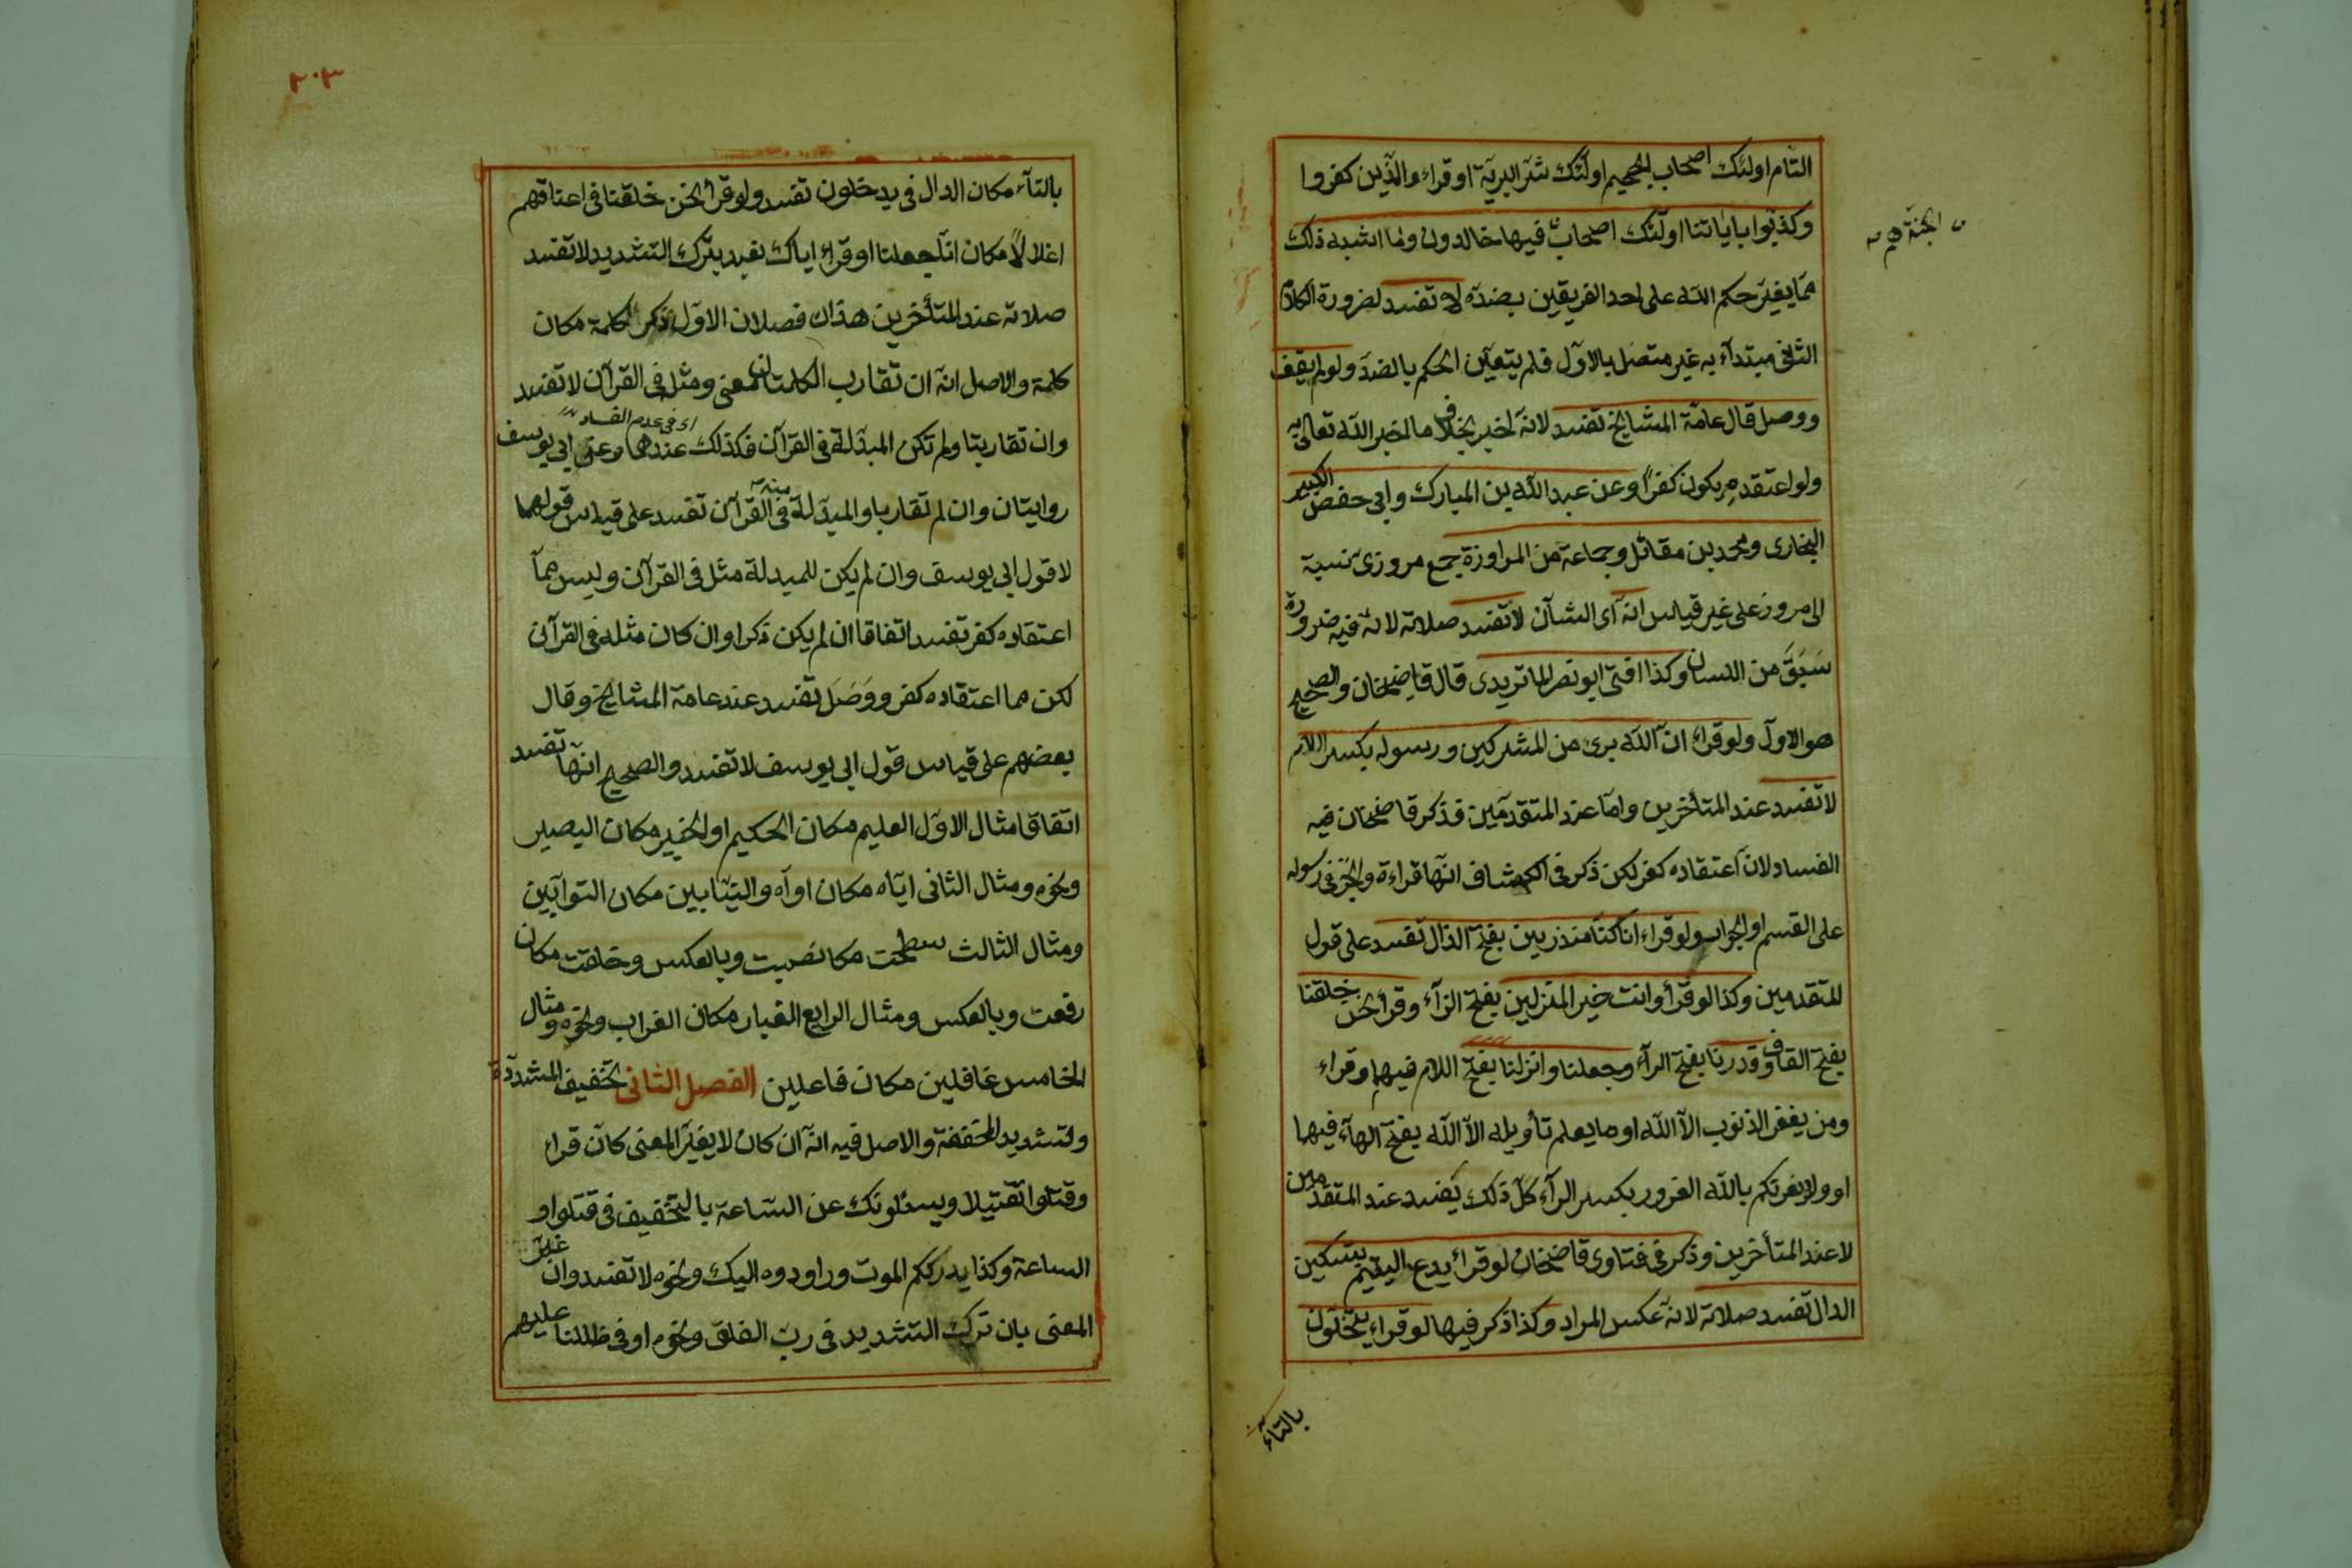 التام اولئك اصحاب الجحيم اولئك شر البرية او قراء والذين كفروا
وكذبوا باياتنا اولئك اصحاب فيها خالدون وما اشبه ذلك
الجنة هم
مما يغير حكم الله على احد الفريقين بضده لا تفسد لضرورة الكلام
الثانى مبتدآء به غير متصل بالاول فلم يتعين الحكم بالضد ولو لم يقف
ووصل قال عامة المشايخ تفسد لانه اخبر بخلاف ما اخبر الله تعالى به
ولو اعتقده يكون كفرا وعن عبد الله بن المبارك وابى حفص الكبير
البخارى ومحمد بن مقاتل وجماعة من المراوزة جمع مروزى نسبة
الى مرو على غير قياس انه اى الشان لا تفسد صلاته لانه فيه ضرورة
سَبَقَ من اللسان وكذا افتى ابو نصر الماتريدى قال قاضيخان والصحيح
هو الاول ولو قراء ان الله برئ من المشركين ورسوله بكسر اللام
لا تفسد عند المتأخرين واما عند المتقدمين فذكر قاضيخان فيه
الفساد لان اعتقاده كفر لكن ذكر فى الكشاف انها قراءة والجر فى رسوله
على القسم او الجواب ولو قراء انا كنا منذرين بفتح الذال تفسد على قول
المتقدمين وكذا لو قرأ وانت خير المنزلين بفتح الزآء وقرأ نحن خلقنا
بفتح القاف وقدرنا بفتح الرآء وجعلنا وانزلنا بفتح اللام فيهما وقراء
ومن يغفر الذنوب الا الله او ما يعلم تأويله الا الله بفتح الهآء فيهما
او ولا يغرنكم بالله الغرور بكسر الرآء كل ذلك يفسد عند المتقدمين
لا عند المتأخرين وذكر فى فتاوى قاضيخان لو قراء يدع اليتيم بتسكين
الدال تفسد صلاته لانه عكس المراد وكذا ذكر فيها لو قراء يتخلون
بالتآء
٢٠٣
بالتآء مكان الدال فى يدخلون تفسد ولو قرأ نحن خلقنا فى اعناقهم
اغلالا مكان انا جعلنا او قراء اياك نعبد بترك التشديد لا تفسد
صلاته عند المتأخرين هذان فصلان الاول ذكر كلمة مكان
كلمة والاصل انه ان تقارب الكلمتان معنى ومثله فى القرآن لا تفسد
وان تقاربتا ولم تكن المبدلة فى القرآن فكذلك عندهما وعن ابى يوسف
اى فى عدم الفساد
روايتان وان لم تقاربا والمبدلة فى القرآن تفسد على قياس قولهما
لا قول ابى يوسف وان لم يكن للمبدلة مثل فى القرآن وليس مما
اعتقاده كفر تفسد اتفاقا ان لم يكن ذكرا وان كان مثله فى القرآن
لكن مما اعتقاده كفر ووَصَلَ تفسد عند عامة المشايخ وقال
بعضهم على قياس قول ابى يوسف لا تفسد والصحيح انها تفسد
اتفاقا مثال الاول العليم مكان الحكيم او الخبير مكان البصير
ونحوه ومثال الثانى اياه مكان اواه والتيابين مكان التوابين
ومثال الثالث سطحت مكان نصبت وبالعكس وخلقت مكان
رفعت وبالعكس ومثال الرابع الغبار مكان الغراب ونحوه ومثال
الخامس غافلين مكان فاعلين الفصل الثانى تخفيف المشددة
وتشديد المخففة والاصل فيه انه ان كان لا يغير المعنى كان قراء
وقتلوا تقتيلا ويسئلونك عن الساعة بالتخفيف فى قتلوا او
الساعة وكذا يدرككم الموت وراودوه اليك ونحوه لا تفسد وان غير
المعنى بان ترك التشديد فى رب الفلق ونحوه او فى ظللنا عليهم